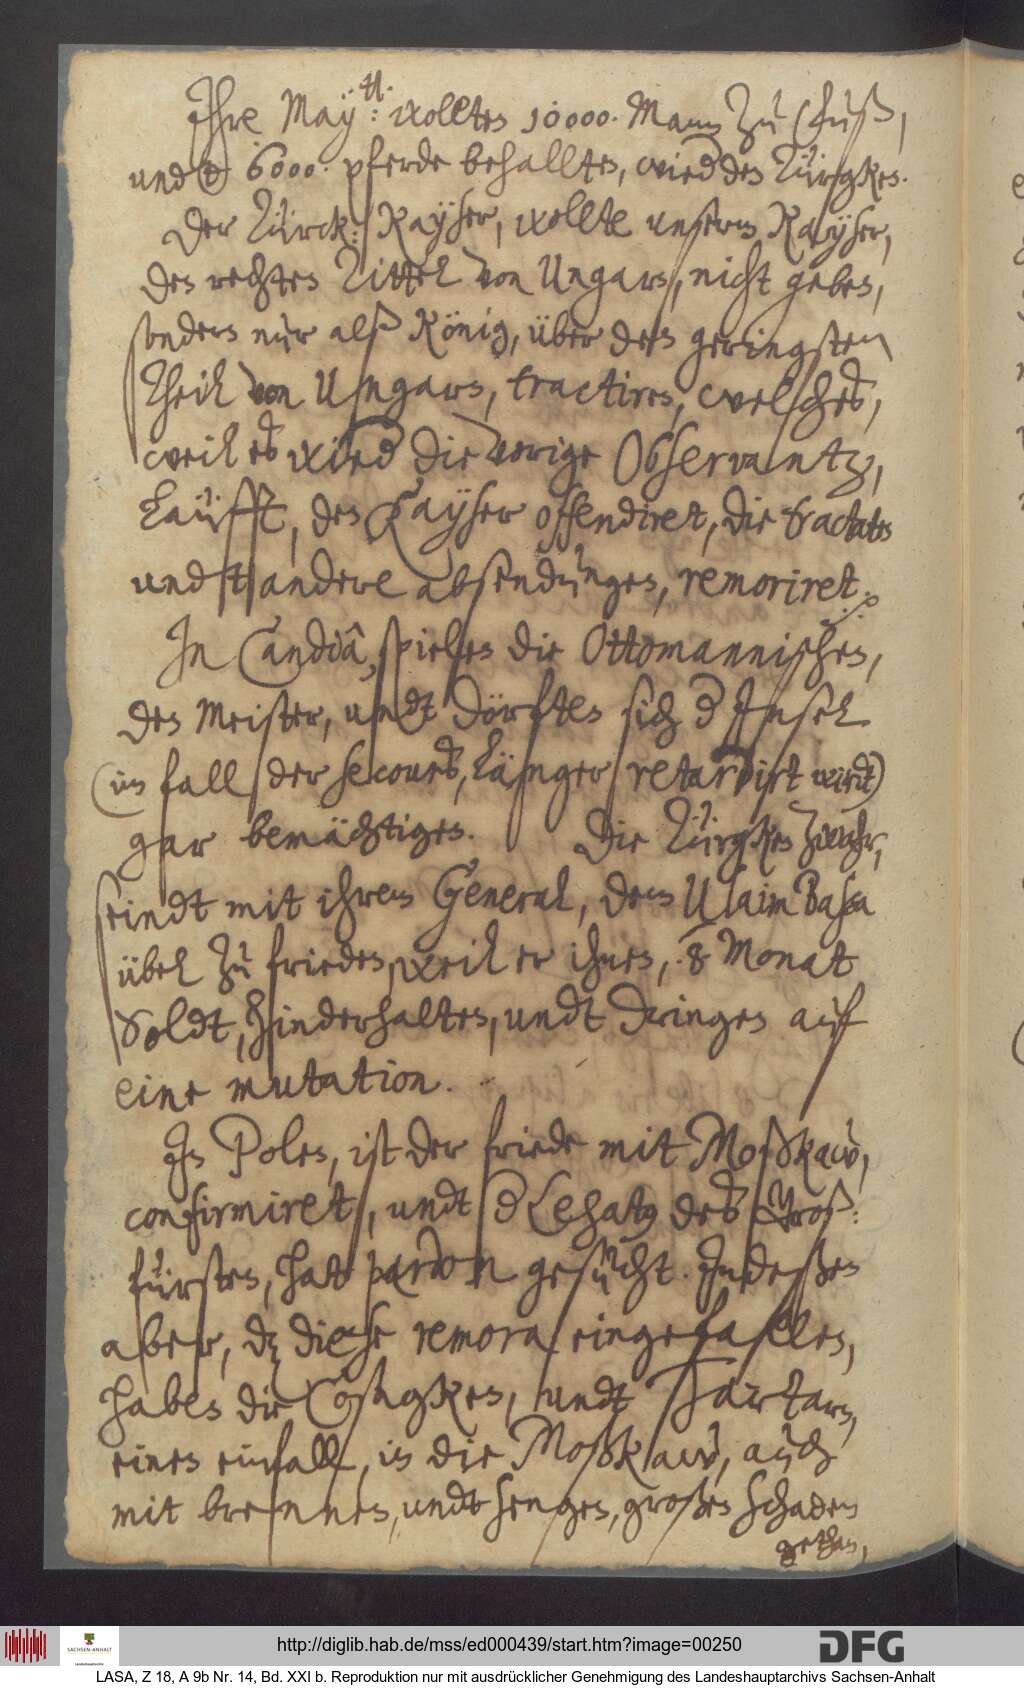 Ihre May:tt: wolten 10000. Mann zu Fuß,
und 6000. pferde behallten, wied den Türgken.
Der Türck: Kayser, wollte unserm Kayser,
den rechten Tittel von Ungarn, nicht geben,
sondern nur alß König, über den geringsten
Theil von Ungarn, tractiren, welches,
weil es wied die vorige Observantz,
Laüfft, den Kayser offendiret, die tractaten
und andere absendungen, remoriret.
In Candia, spielen die Ottomannischen,
den Meister, undt dörften sich d Insel
(im fall der secours, Länger retardirt wirdt)
gar bemächtigen. Die Türgken zwahr,
seindt mit ihrem General, dem Usaim Bassa
übel zu frieden, weil er ihnen, 8 Monat
Soldt, hinderhalten, undt dringen auf
eine mutation.
In Polen, ist der friede mit Moßkaw,
confirmiret, undt d Legatq des Groß:
fürsten, hat pardon gesücht. Indeßen
aber, dz diese remora eingefallen,
haben die Cosagken, undt Tartarn,
einen einfall, in die Moßkaw, auch
mit brennen, undt sengen, großen schaden
gethan,
http://diglib.hab.de/mss/ed000439/start.htm?image=00250
SACHSEN-ANHALT
DFG
LASA, Z 18, A 9b Nr. 14, Bd. XXI b. Reproduktion nur mit ausdrücklicher Genehmigung des Landeshauptarchivs Sachsen-Anhalt